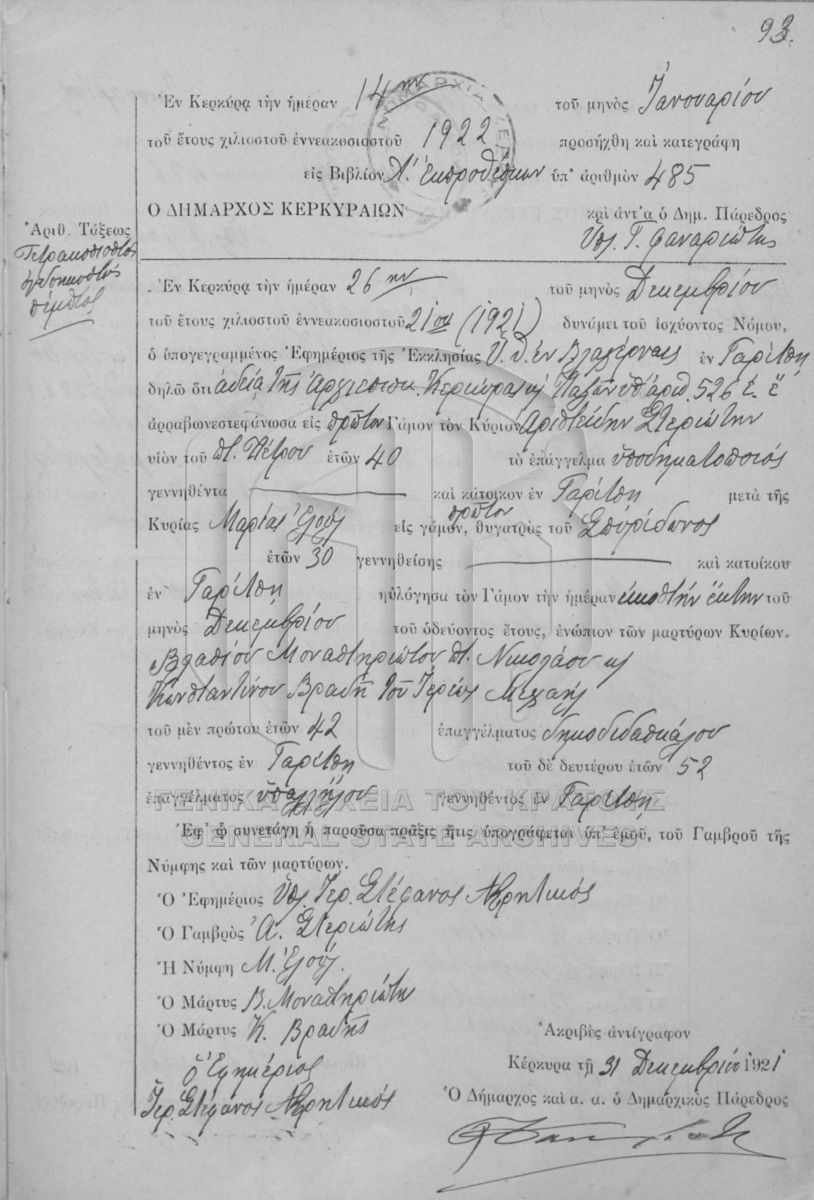 93.
Ἐν Κερκύρᾳ τὴν ἡμέραν 14ην τοῦ μηνὸς Ἰανουαρίου
τοῦ ἔτους χιλιοστοῦ ἐννεακοσιοστοῦ 1922 προσήχθη καὶ κατεγράφη
εἰς Βιβλίον Λ. Ἐκπροθέσμων ὑπ' ἀριθμὸν 485
Ο ΔΗΜΑΡΧΟΣ ΚΕΡΚΥΡΑΙΩΝ καὶ ἀντ'α ὁ Δημ. Πάρεδρος
Ὑπ. Γ. Φαναριώτης
Ἀριθ. Τάξεως
Τετρακοσιοστός
ὀγδοηκοστός
πέμπτος
Ἐν Κερκύρᾳ τὴν ἡμέραν 26ην τοῦ μηνὸς Δεκεμβρίου
τοῦ ἔτους χιλιοστοῦ ἐννεακοσιοστοῦ 21ου (1921) δυνάμει τοῦ ἰσχύοντος Νόμου,
ὁ ὑπογεγραμμένος Ἐφημέριος τῆς Ἐκκλησίας Υ. Θ. ἐν Βλαχέρναις ἐν Γαρίτσῃ
δηλῶ ὅτι ἀδείᾳ τῆς Ἀρχιεπισκ. Κερκύρας κ Παξῶν ὑπ' ἀριθ. 526 ἐ. ἔ
ἀρραβωνεστεφάνωσα εἰς πρῶτον Γάμον τὸν Κύριον Ἀριστείδην Στεριώτην
υἱὸν τοῦ π. Πέτρου ἐτῶν 40 τὸ ἐπάγγελμα ὑποδηματοποιός
γεννηθέντα καὶ κάτοικον ἐν Γαρίτσῃ μετὰ τῆς
Κυρίας Μαρίας Ἐλούλ εἰς πρῶτον γάμον, θυγατρὸς τοῦ Σπυρίδωνος
ἐτῶν 30 γεννηθείσης καὶ κατοίκου
ἐν Γαρίτσῃ ηὐλόγησα τὸν Γάμον τὴν ἡμέραν εἰκοστήν ἕκτην τοῦ
μηνὸς Δεκεμβρίου τοῦ ὁδεύοντος ἔτους, ἐνώπιον τῶν μαρτύρων Κυρίων.
Βλασίου Μοναστηριώτου π. Νικολάου κ
Κωνσταντίνου Βραδῆ τοῦ Ἱερέως Μιχαήλ
τοῦ μὲν πρώτου ἐτῶν 42 ἐπαγγέλματος δημοδιδασκάλου
γεννηθέντος ἐν Γαρίτσῃ τοῦ δὲ δευτέρου ἐτῶν 52
ἐπαγγέλματος ὑπαλλήλου γεννηθέντος ἐν Γαρίτσῃ
ΓΕΝΙΚΑ ΑΡΧΕΙΑ ΤΟΥ ΚΡΑΤΟΥΣ
Ἐφ' ᾧ συνετάγη ἡ παροῦσα πρᾶξις ἥτις ὑπογράφεται ὑπ' ἐμοῦ, τοῦ Γαμβροῦ τῆς
GENERAL STATE ARCHIVES
Νύμφης καὶ τῶν μαρτύρων.
Ὁ Ἐφημέριος Ὑπ. Ἱερ. Στέφανος
Ὁ Γαμβρὸς Ἀ. Στεριώτης
Ἡ Νύμφη Μ. Ἐλούλ.
Ὁ Μάρτυς Β. Μοναστηριώτης
Ὁ Μάρτυς Κ. Βραδῆς
Ὁ Ἐφημέριος
Ἱερ. Στέφανος
Ἀκριβὲς ἀντίγραφον
Κέρκυρα τῇ 31 Δεκεμβρίου 1921
Ὁ Δήμαρχος καὶ α. α. ὁ Δημαρχικὸς Πάρεδρος